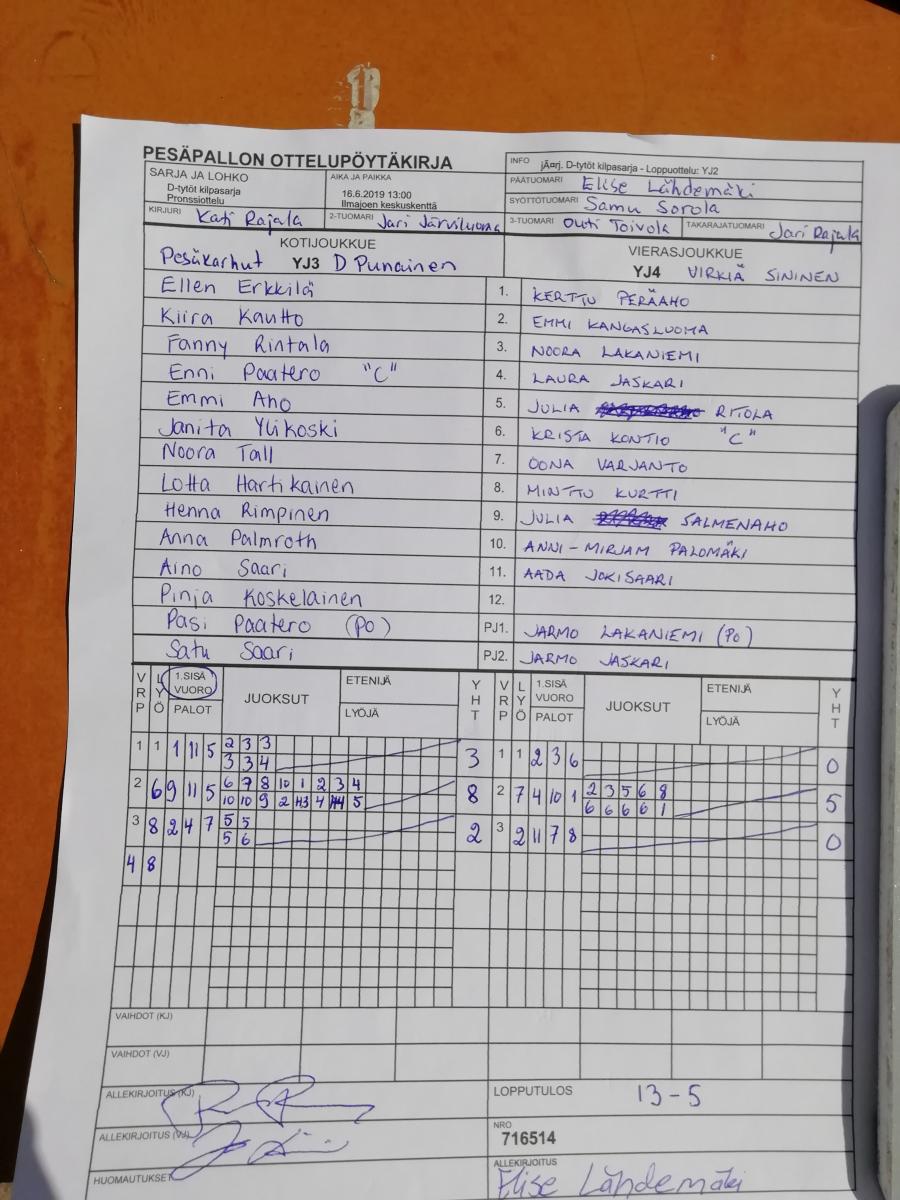 PESÄPALLON OTTELUPÖYTÄKIRJA
INFO jÄ¤rj. D-tytöt kilpasarja - Loppuottelu: YJ2
SARJA JA LOHKO
D-tytöt kilpasarja
Pronssiottelu
AIKA JA PAIKKA
16.6.2019 13:00
Ilmajoen keskuskenttä
PÄÄTUOMARI Elise Lähdemäki
SYÖTTÖTUOMARI Samu Sorola
KIRJURI Kati Rajala 2-TUOMARI Jari Järviluoma 3-TUOMARI Outi Toivola TAKARAJATUOMARI Jari Rajala
KOTIJOUKKUE VIERASJOUKKUE
Pesäkarhut YJ3 D Punainen YJ4 VIRKIÄ SININEN
Ellen Erkkilä 1. KERTTU PERÄAHO
Kiira Kautto 2. EMMI KANGASLUOMA
Fanny Rintala 3. NOORA LAKANIEMI
Enni Paatero "C" 4. LAURA JASKARI
Emmi Aho 5. JULIA RITOLA
Janita Ylikoski 6. KRISTA KONTIO "C"
Noora Tall 7. OONA VARJANTO
Lotta Hartikainen 8. MINTTU KURTTI
Henna Rimpinen 9. JULIA SALMENAHO
Anna Palmroth 10. ANNI-MIRJAM PALOMÄKI
Aino Saari 11. AADA JOKISAARI
Pinja Koskelainen 12.
Pasi Paatero (PO) PJ1. JARMO LAKANIEMI (PO)
Satu Saari PJ2. JARMO JASKARI
VRP LYÖ 1.SISÄ VUORO PALOT JUOKSUT ETENIJÄ LYÖJÄ YHT VRP LYÖ 1.SISÄ VUORO PALOT JUOKSUT ETENIJÄ LYÖJÄ YHT
1 1 1 11 5 2 3 3 3 1 1 2 3 6 0
3 3 4
2 6 9 11 5 6 7 8 10 1 2 3 4 8 2 7 4 10 1 2 3 5 6 8 5
10 10 9 2 3 4 5 6 6 6 6 1
3 8 2 4 7 5 5 2 3 2 11 7 8 0
5 6
4 8
VAIHDOT (KJ)
VAIHDOT (VJ)
ALLEKIRJOITUS (KJ) LOPPUTULOS 13-5
ALLEKIRJOITUS (VJ) NRO 716514
HUOMAUTUKSET ALLEKIRJOITUS Elise Lähdemäki